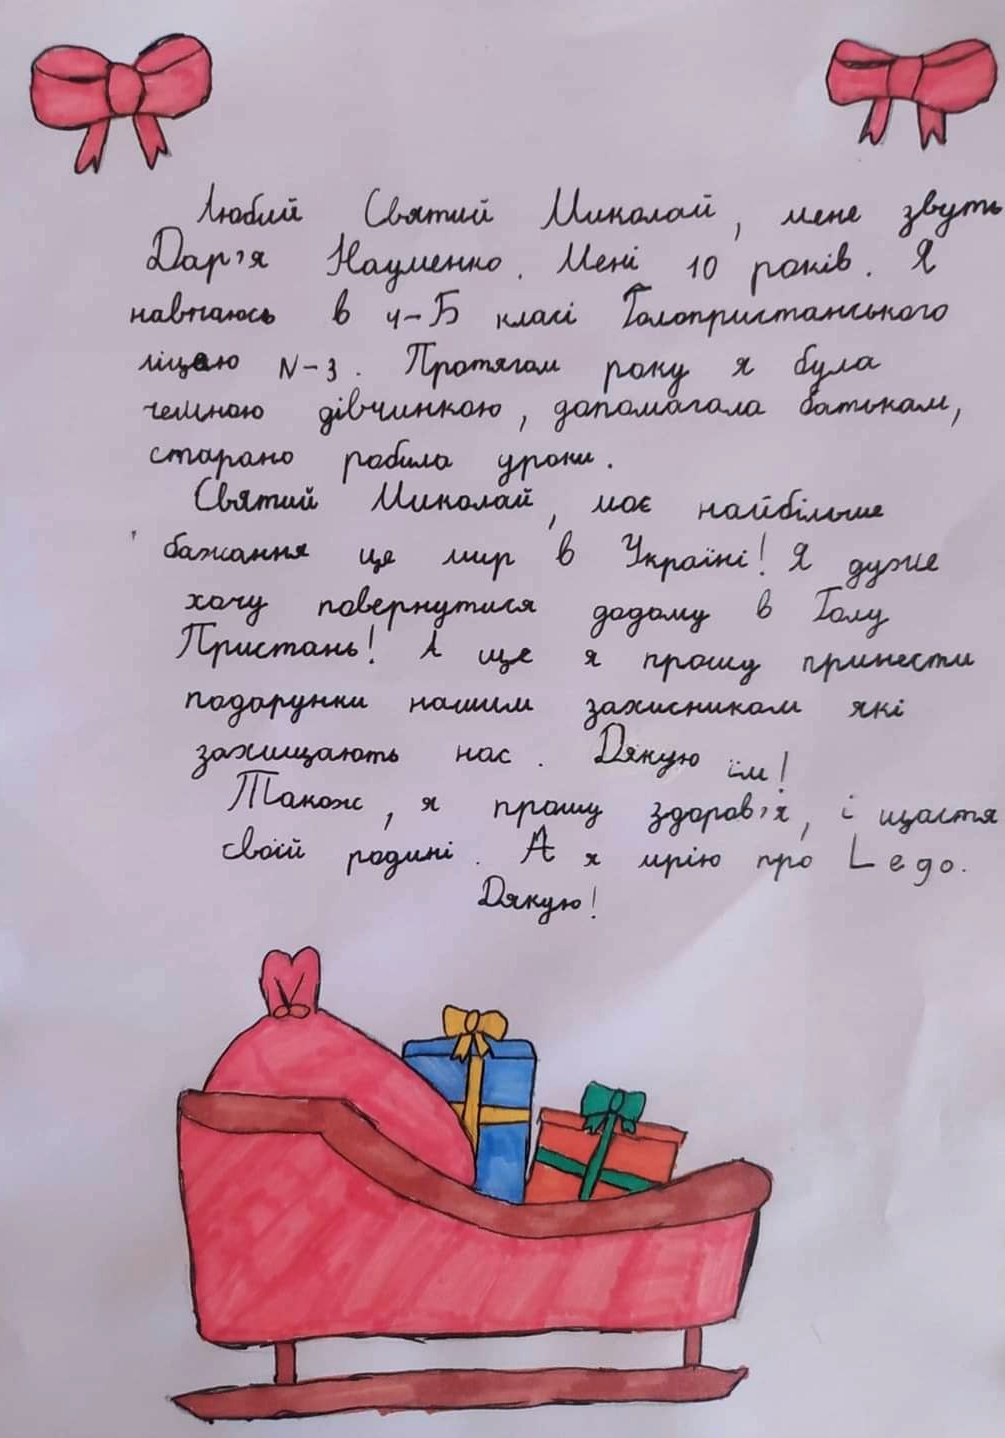 Любий Святий Миколай, мене звуть
Дар'я Науменко. Мені 10 років. Я
навчаюсь в 4-Б класі Голопристанського
ліцею N-3. Протягом року я була
чемною дівчинкою, допомагала батькам,
старано робила уроки.
Святий Миколай, моє найбільше
бажання це мир в Україні! Я дуже
хочу повернутися додому в Голу
Пристань! А ще я прошу принести
подарунки нашим захисникам які
захищають нас. Дякую їм!
Також, я прошу здоров'я, і щастя
своїй родині. А я мрію про Lego.
Дякую!